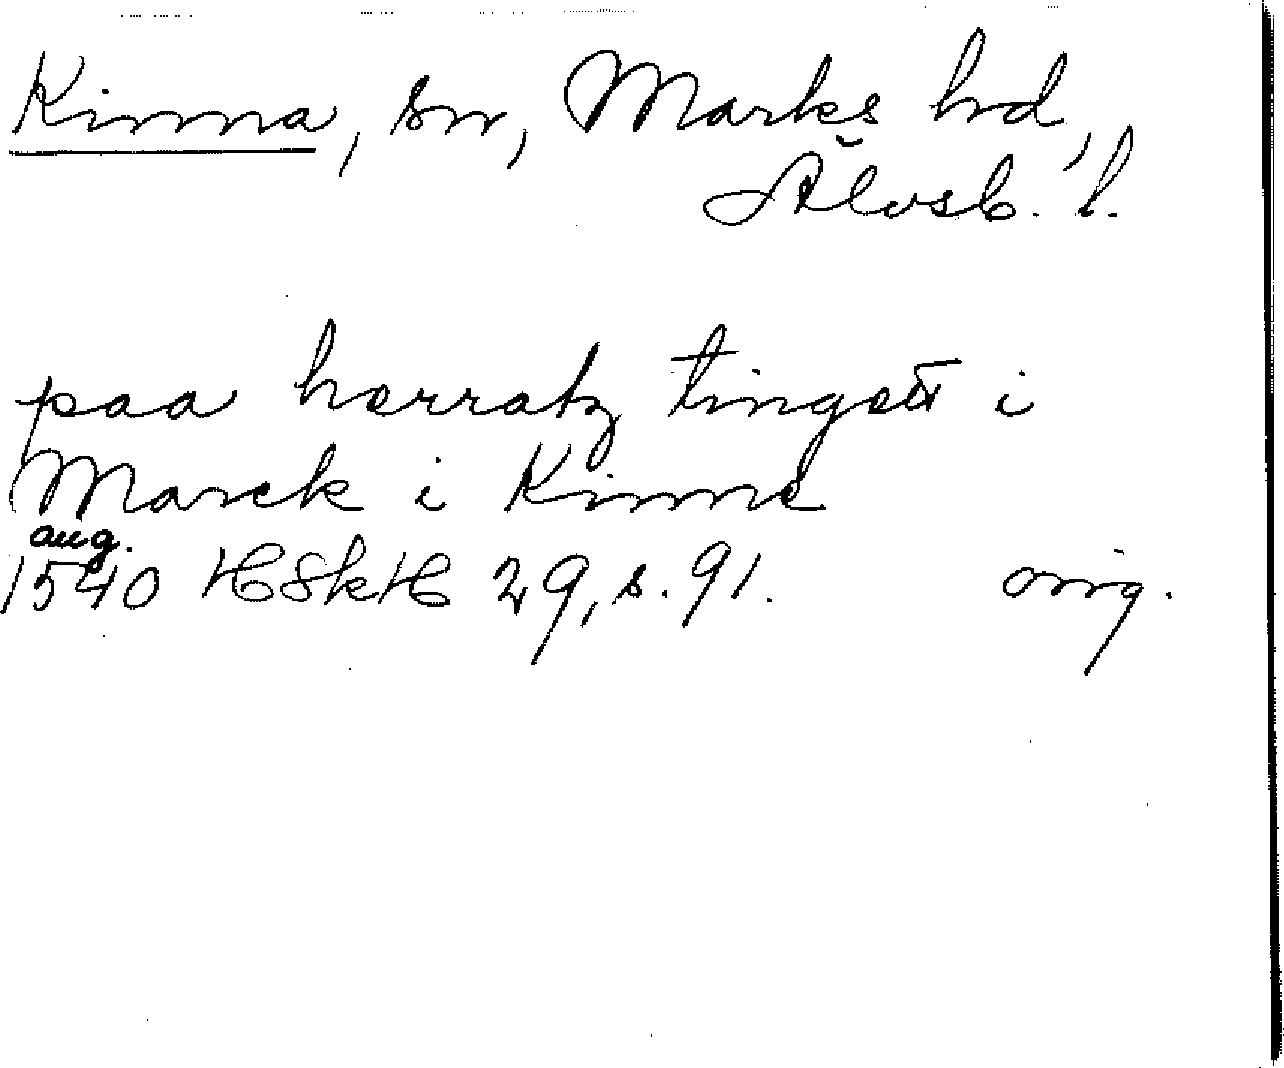 Kinna, sn, Marks hd,
Älvsb. l.
paa herratz tingett i
Marck i Kinne
aug.
1540 HSkH 29, s. 91. orig.